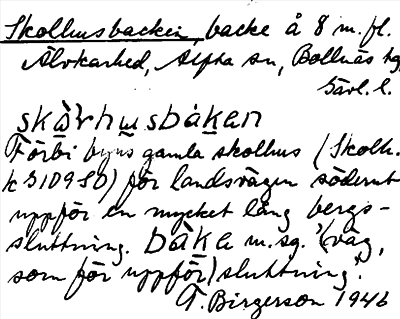 Skolhusbacken, backe å 8 m. fl.
Älvkarhed, Alfta sn, Bollnäs tg,
Gävl. l.
skò̀ɽhɯsbàkan
Förbi byns gamla skolhus (Skolh.
k 310980) för landsvägen söderut
uppför en mycket lång bergs-
sluttning. bàka m. sg. '(väg,
som för uppför) sluttning'.
A. Birgerson 1946